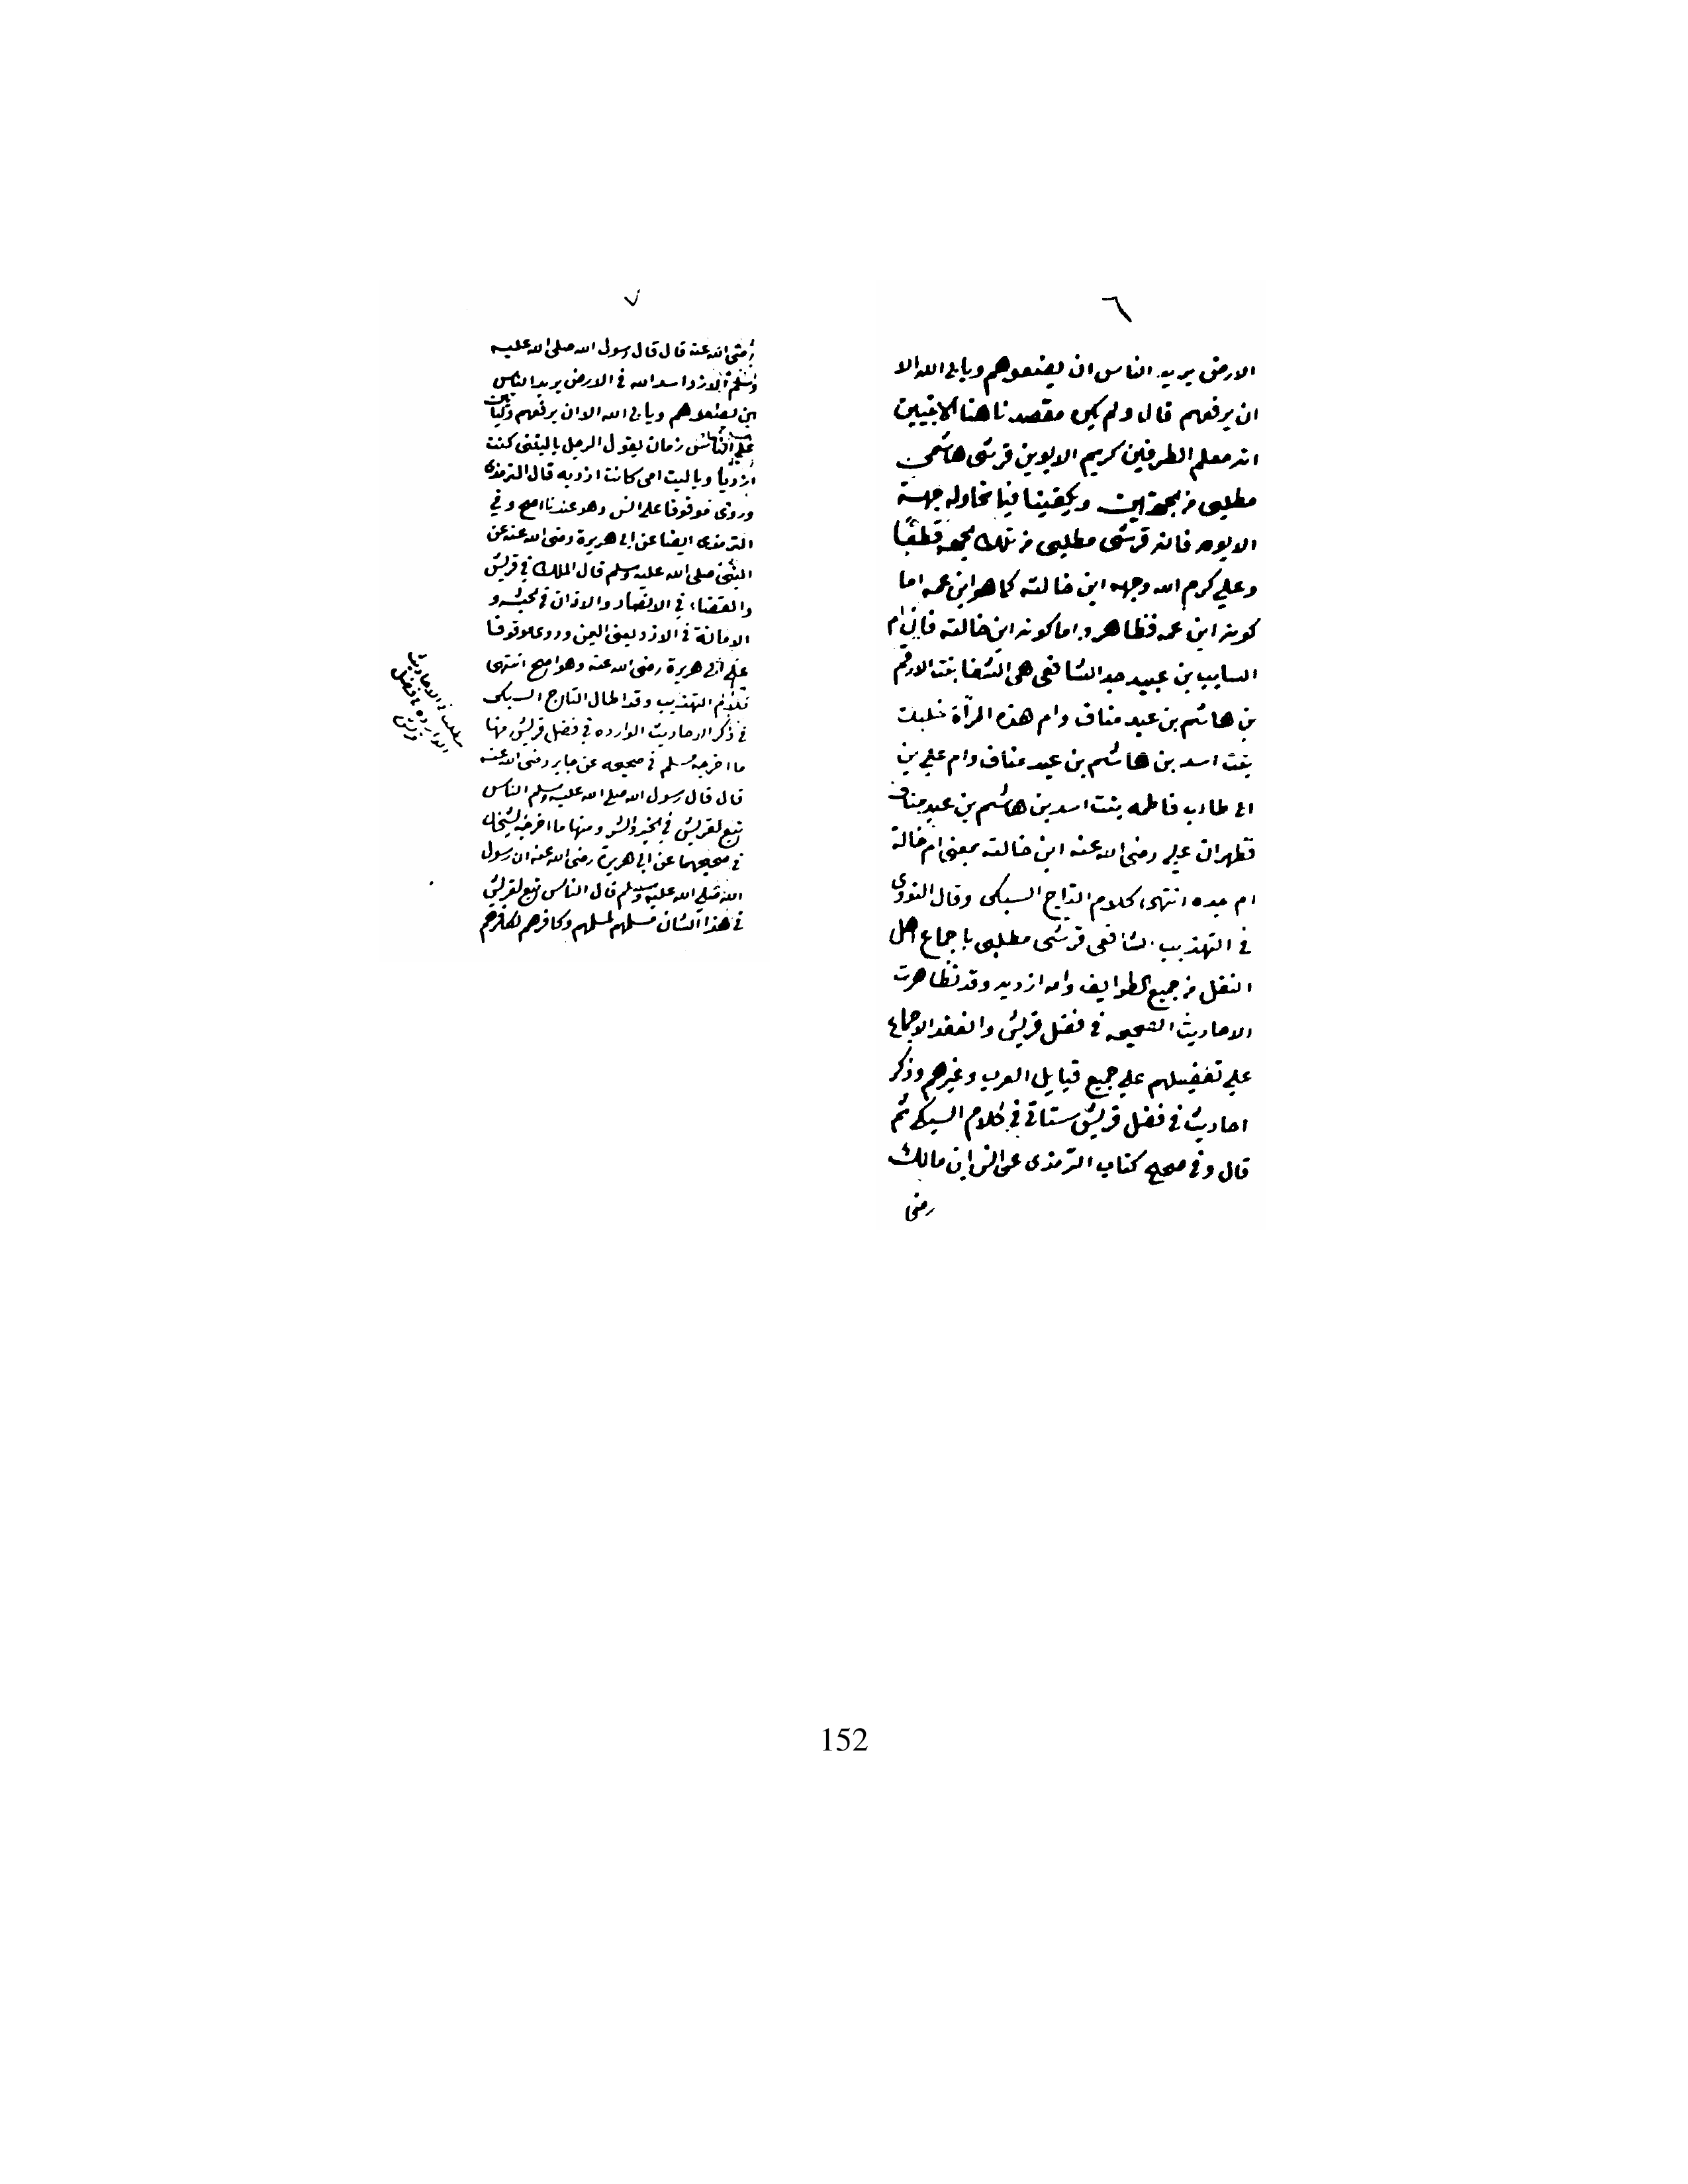 ٦
الارض يريد الناس ان يضعوهم ويابى الله الا
ان يرفعهم قال ولم يكن مقصدنا هنا الا تبيين
انه معلم الطرفين كريم الابوين قرشى هاشمى
مطلبى من الجهتين ويكفينا فيما نحاوله جهة
الابوه فانه قرشى مطلبى من تلك الجهه قطعًا
وعلي كرم الله وجهه ابن خالته كما هو ابن عمه اما
كونه ابن عمه فظاهر واما كونه ابن خالته فان ام
السايب بن عبيد جد الشافعى هى الشفا بنت الارقم
بن هاشم بن عبد مناف وام هذه المرأة خليدة
بنت اسد بن هاشم بن عبد مناف وام علي بن
ابى طالب فاطمه بنت اسد بن هاشم بن عبد مناف
فظهر ان علي رضى الله عنه ابن خالته بمعنى ام خالة
ام جده انتهى كلام التاج السبكى وقال النووى
في التهذيب الشافعى قرشى مطلبى باجماع اهل
النقل من جميع الطوايف وامه ازديه وقد تظاهرت
الاحاديث الصحيحه في فضل قريش وانعقد الاجماع
علي تفضيلهم علي جميع قبايل العرب وغيرهم وذكر
احاديث في فضل قريش ستاتي في كلام السبكى ثم
قال وفي صحيح كتاب الترمذى عن انس ابن مالك
رضى
٧
رضى الله عنه قال قال رسول الله صلى الله عليه
وسلم الازد اسد الله في الارض يريد الناس
ان يضعوهم ويابى الله الا ان يرفعهم وليأتين
على الناس زمان يقول الرجل ياليتنى كنت
ازديا وياليت امى كانت ازديه قال الترمذى
وروى موقوفا على انس وهو عندنا اصح وفي
الترمذى ايضا عن ابى هريرة رضى الله عنه عن
النبي صلى الله عليه وسلم قال الملك في قريش
والقضاء في الانصار والاذان في الحبشه و
الامانة في الازد يعنى اليمن وروى موقوفا
على ابى هريرة رضى الله عنه وهو اصح انتهى
كلام التهذيب وقد اطال التاج السبكى
في ذكر الاحاديث الوارده في فضل قريش منها
ما اخرجه مسلم في صحيحه عن جابر رضى الله عنه
قال قال رسول الله صلى الله عليه وسلم الناس
تبع لقريش في الخير والشر ومنها ما اخرجه الشيخان
في صحيحهما عن ابى هريرة رضى الله عنه ان رسول
الله صلى الله عليه وسلم قال الناس تبع لقريش
في هذا الشان مسلمهم لمسلمهم وكافرهم لكافرهم
مطلب في الاحاديث
الوارده في فضل
قريش
152